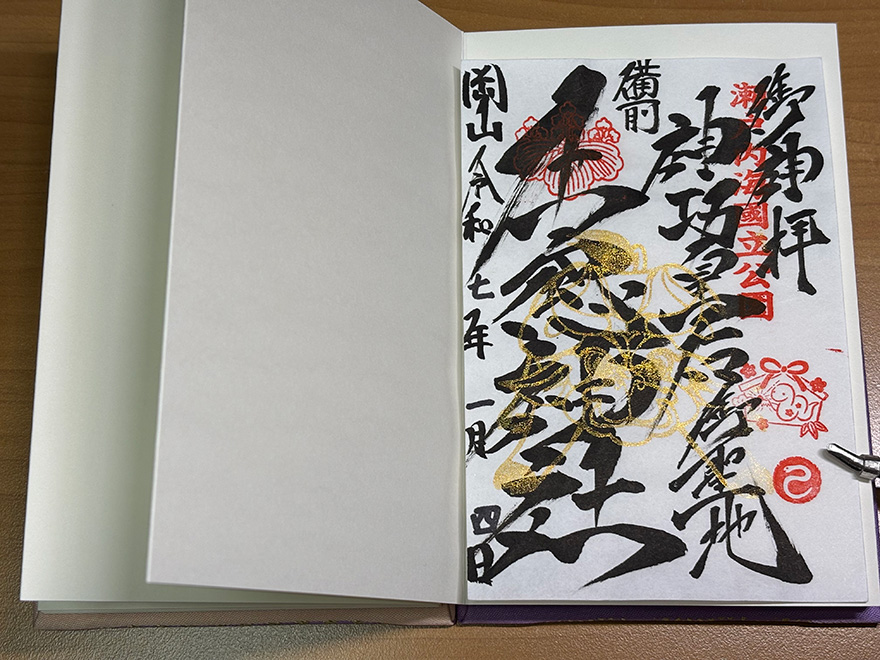 瀬戸内海國立公園
神功皇后御聖地
備前
牛窓神社
岡山
令和七年一月四日
巳